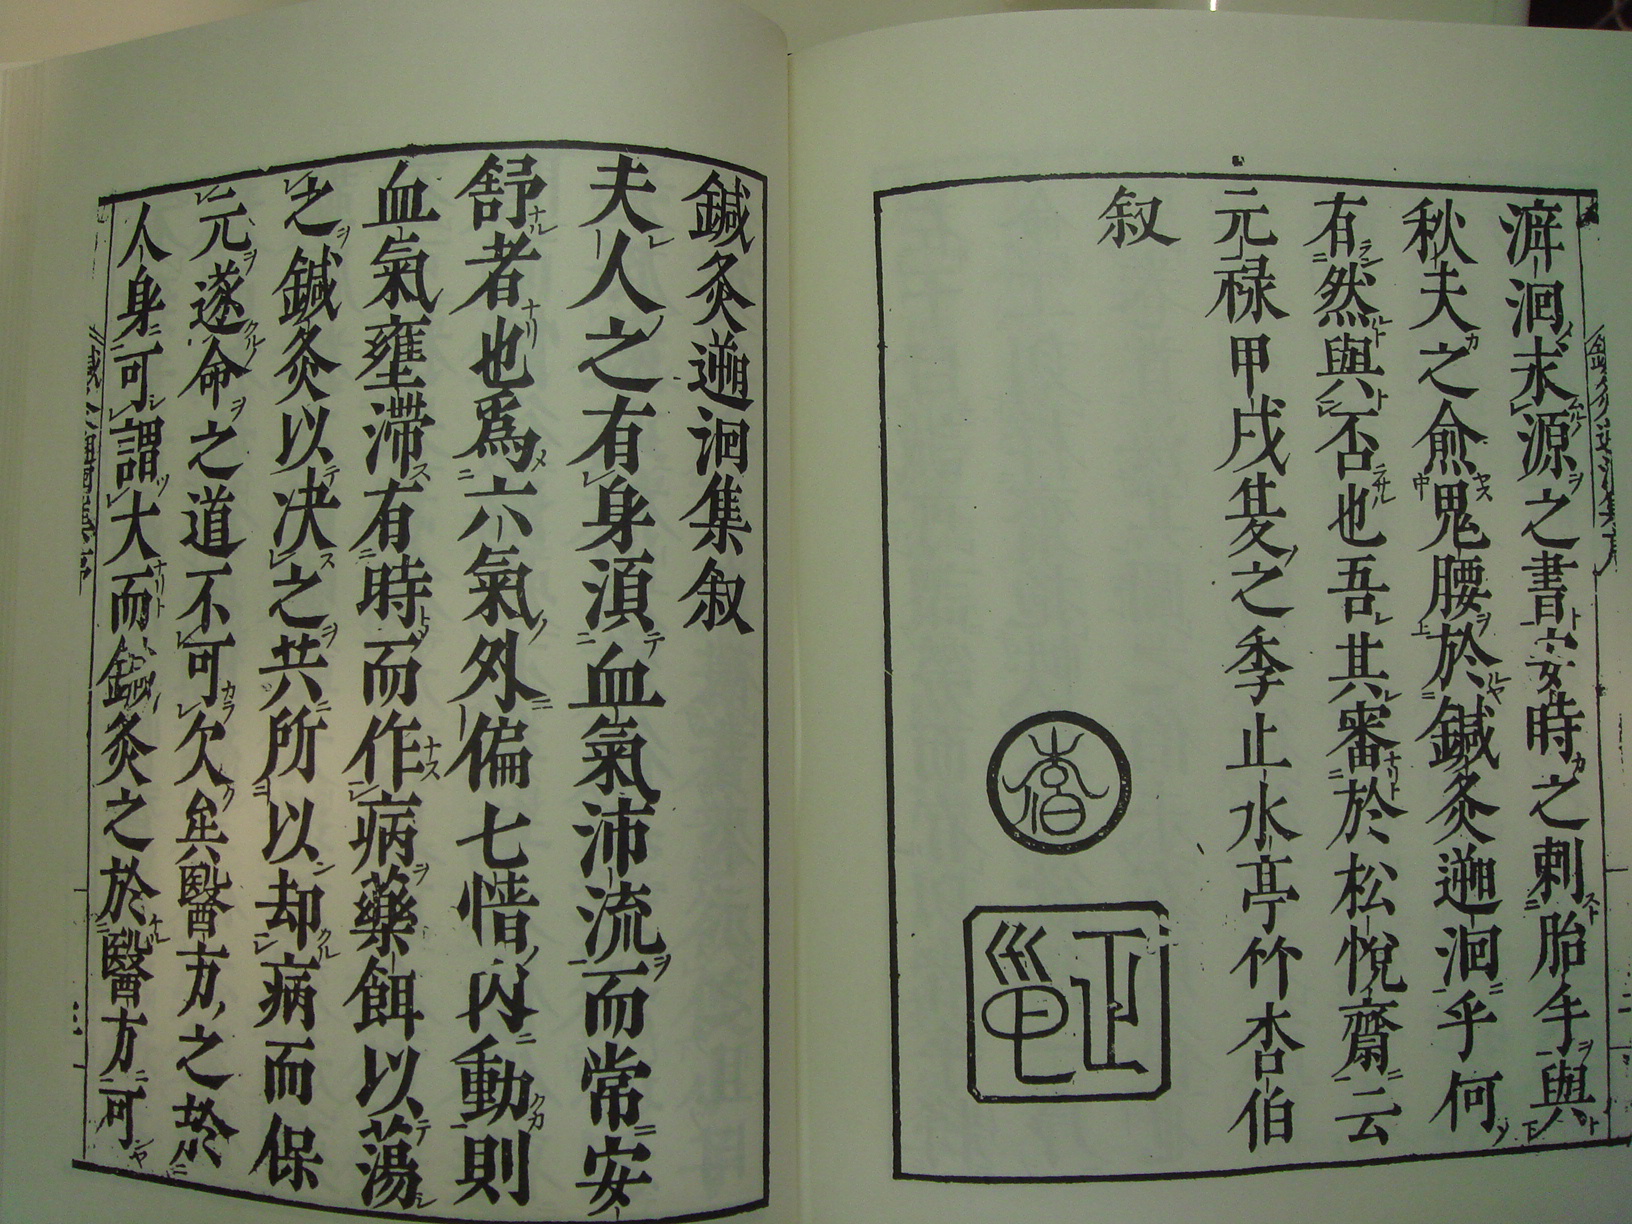 溯洄求源之書安時之刺胎手與
秋夫之愈鬼腰於鍼灸遡洄乎何
有然與否也吾其審於松悅齋云
元禄甲戌夏之季止水亭竹杏伯
叙
鍼灸遡洄集叙
夫人之有身須血氣沛流而常安
舒者也爲六氣外偏七情内動則
血氣壅滞有時而作病藥餌以蕩
之鍼灸以决之共所以却病而保
元遂命之道不可欠矣醫方之於
人身可謂大而鍼灸之於醫方可